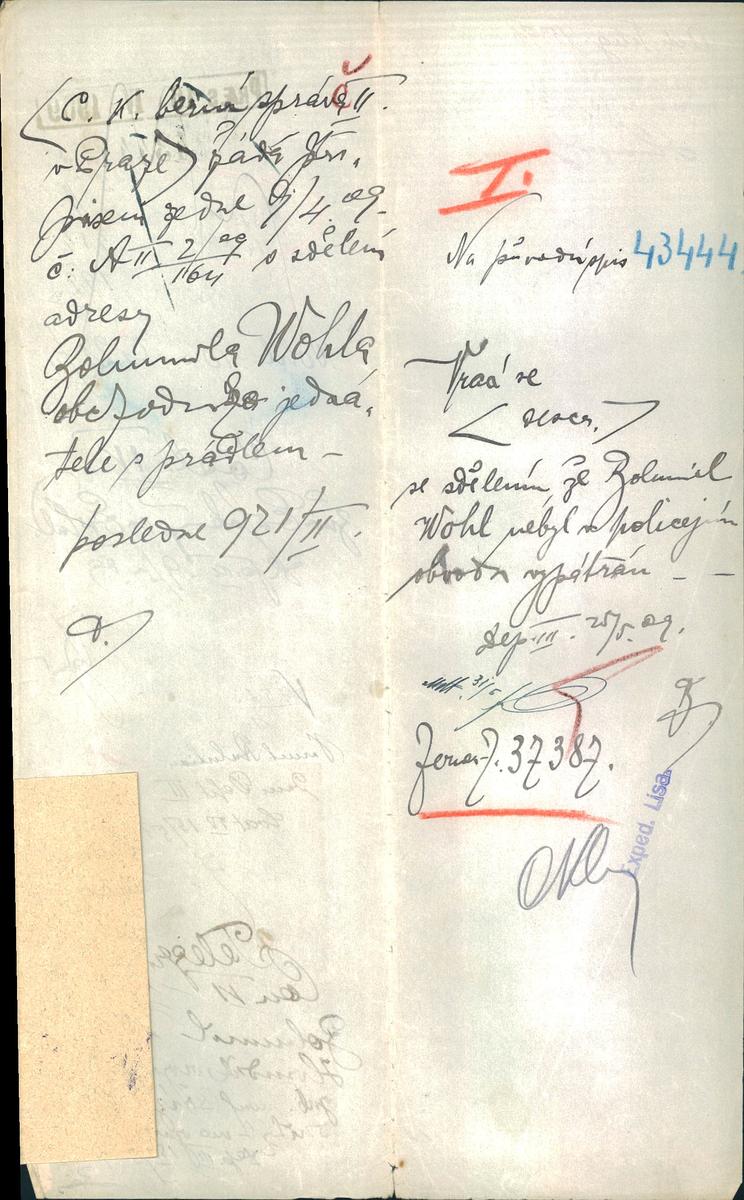 C. K. berní správa II.
v Praze žádá při-
pisem ze dne 9/4. 09.
č. A II 2/09 o sdělení
164
adresy
Bohumila Wohla
obchodního jedna-
tele s prádlem –
posledně 921/II.
Č
I.
Na původní spis 43444
Vrací se
se sdělením že Bohumil
Wohl nebyl v policejním
obvodu vypátrán – –
dep. III. 25/5. 09.
31/5
37387.
Exped. Lisa.